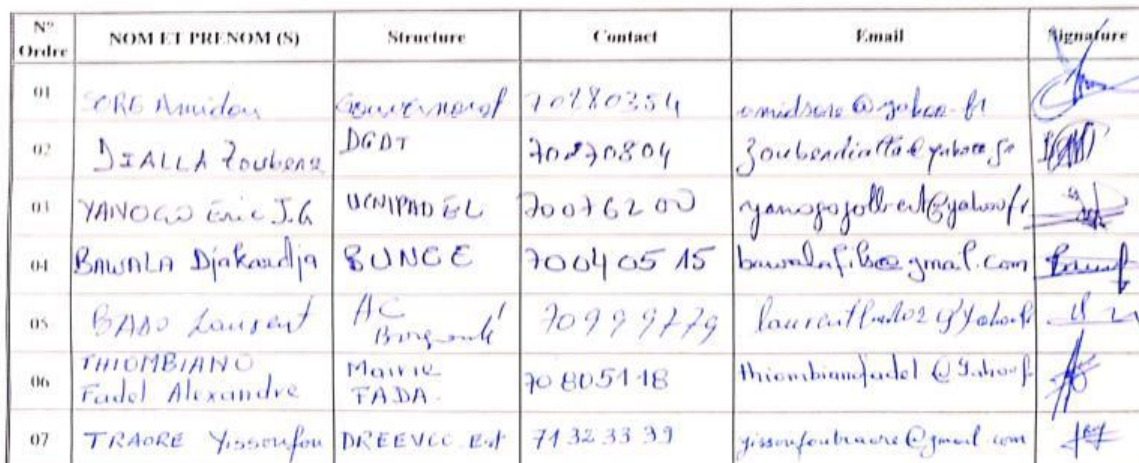 N° Ordre NOM ET PRENOM (S) Structure Contact Email Signature
01 SORE Amidou Gouvernorat 70280354 amidsore@yahoo.fr
02 DIALLA DGDT 70270804
03 YANOGO Eric J.G UCNIPADEL 70076200
04 BAWALA Djakardja BUNCE 70040515 bawalafils@gmail.com
05 BADO Laurent AC 70999779
06 THIOMBIANO Fadel Alexandre Mairie FADA. 70805118 thiombianofadel@Yahoo.fr
07 TRAORE Yissoufou DREEVCC.Est 71323339 yissoufoutraore@gmail.com